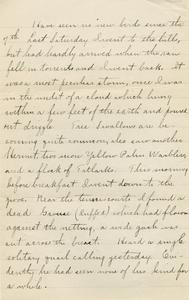 Have seen no new birds since the
9th. Last Saturday I went to the hills,
but had hardly arrived when the rain
fell in torrents and I went back. It
was a most peculiar storm, once I was
in the midst of a cloud which hung
within a few feet of the earth and poured
out drizzle. Tree Swallows are be
coming quite common, also saw another
Hermit, two more Yellow Palm Warblers,
and a flock of Titlarks. This morning
before breakfast I went down to the
grove. Near the tennis court I found a
dead Grouse (Ruffed) which had flown
against the netting, a wide gash was
cut across the breast. Heard a single
solitary quail calling yesterday. Evi-
dently he had seen none of his kind for
a while.